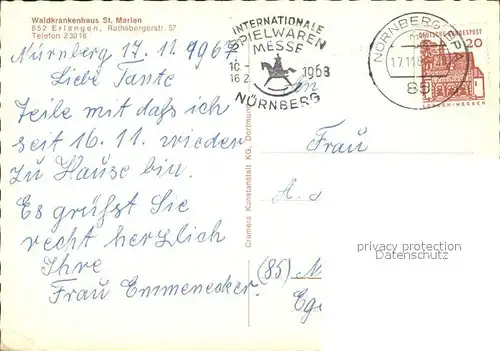 Waldkrankenhaus St. Marien
852 Erlangen, Rathsbergerstr. 57
Telefon 23018
Nürnberg 17.11.1967
Liebe Tante
Teile mit daß ich
seit 16.11. wieder
zu Hause bin.
Es grüßst Sie
recht herzlich
Ihre
Frau Emmenecker.
INTERNATIONALE
SPIELWAREN
MESSE
10.-
16.2.
1968
NÜRNBERG
NÜRNBERG
17.11.
85
DEUTSCHE BUNDESPOST
20
LORSCH/HESSEN
Cramers Kunstanstalt KG, Dortmund
An
Frau
A.
(85) N
privacy protection
Datenschutz